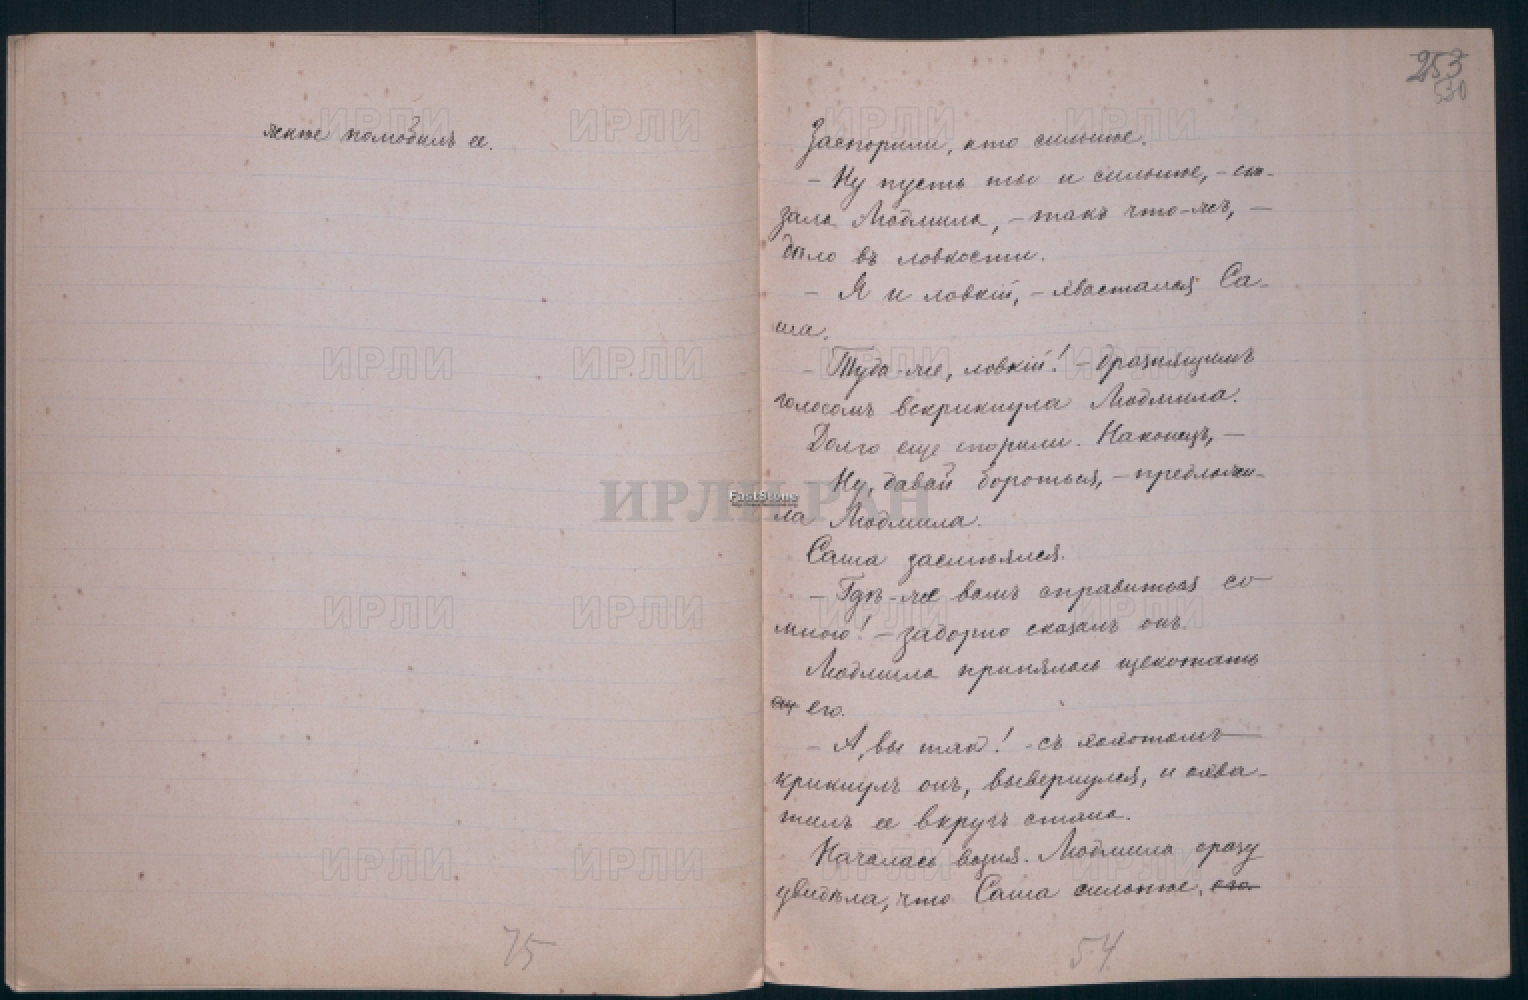 полюбилъ ее.
75
253
530
Заспорили, кто сильнѣе.
– Ну пусть ты и сильнѣе, – ска-
зала Людмила, – такъ что-жъ, –
дѣло въ ловкости.
– Я и ловкій, – хвастался Са-
ша.
– Туда-же, ловкій! – дразнящимъ
голосомъ вскрикнула Людмила.
Долго еще спорили. Наконецъ, –
Ну, давай бороться, – предложи-
ла Людмила.
Саша засмѣялся.
– Гдѣ-же вамъ справиться со
мною! – задорно сказалъ онъ.
Людмила принялась щекотать
его.
– А, вы такъ! – съ хохотомъ
крикнулъ онъ, вывернулся, и охва-
тилъ ее вкругъ стана.
Началась возня. Людмила сразу
увидѣла, что Саша сильнѣе. его
54
ИРЛИ РАН
FastStone
ИРЛИ ИРЛИ ИРЛИ ИРЛИ
ИРЛИ ИРЛИ ИРЛИ ИРЛИ
ИРЛИ ИРЛИ ИРЛИ ИРЛИ
ИРЛИ ИРЛИ ИРЛИ ИРЛИ